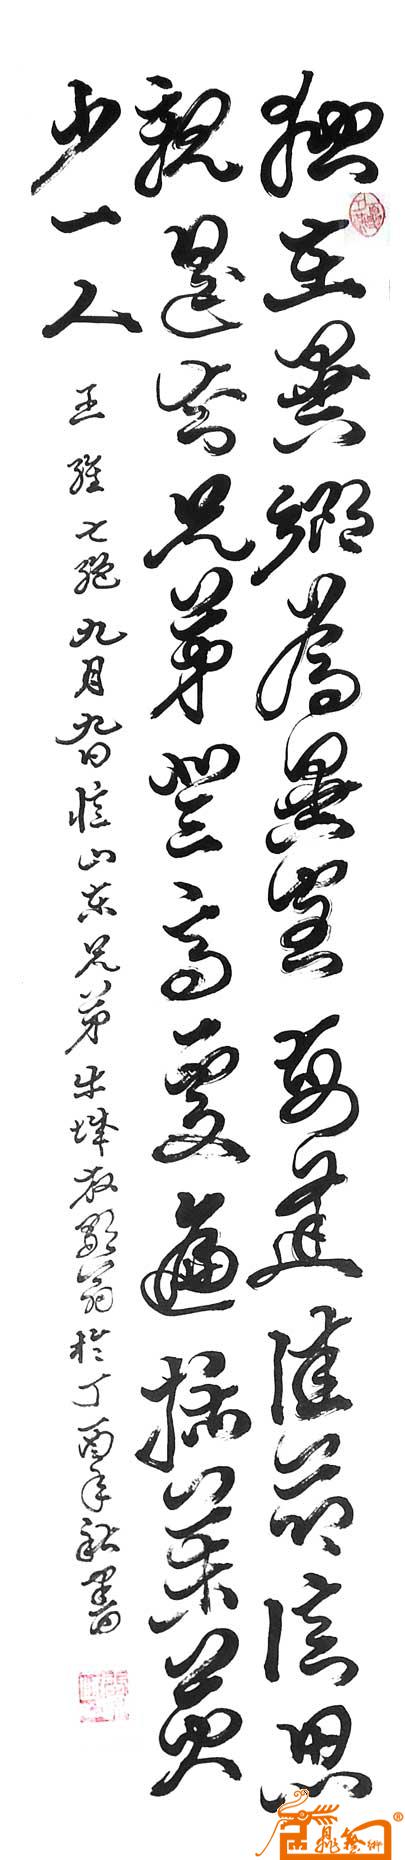 獨在異鄉為異客每逢佳節倍思
親遙知兄弟登高處遍插茱萸
少一人 王維七絕九月九日憶山東兄弟 於丁酉年秋書